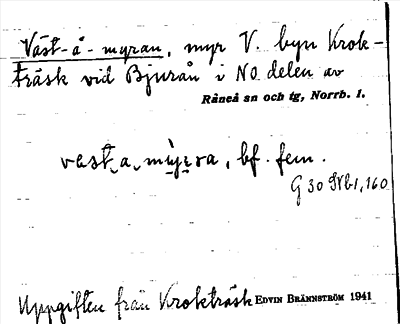 Väst-å-myran, myr V. byn Krok-
träsk vid Bjurån i NO delen av
Råneå sn och tg, Norrb. l.
vast a myra, bf. fem.
G 30 Nb1, 160
Uppgiften från Krokträsk EDVIN BRÄNNSTRÖM 1941